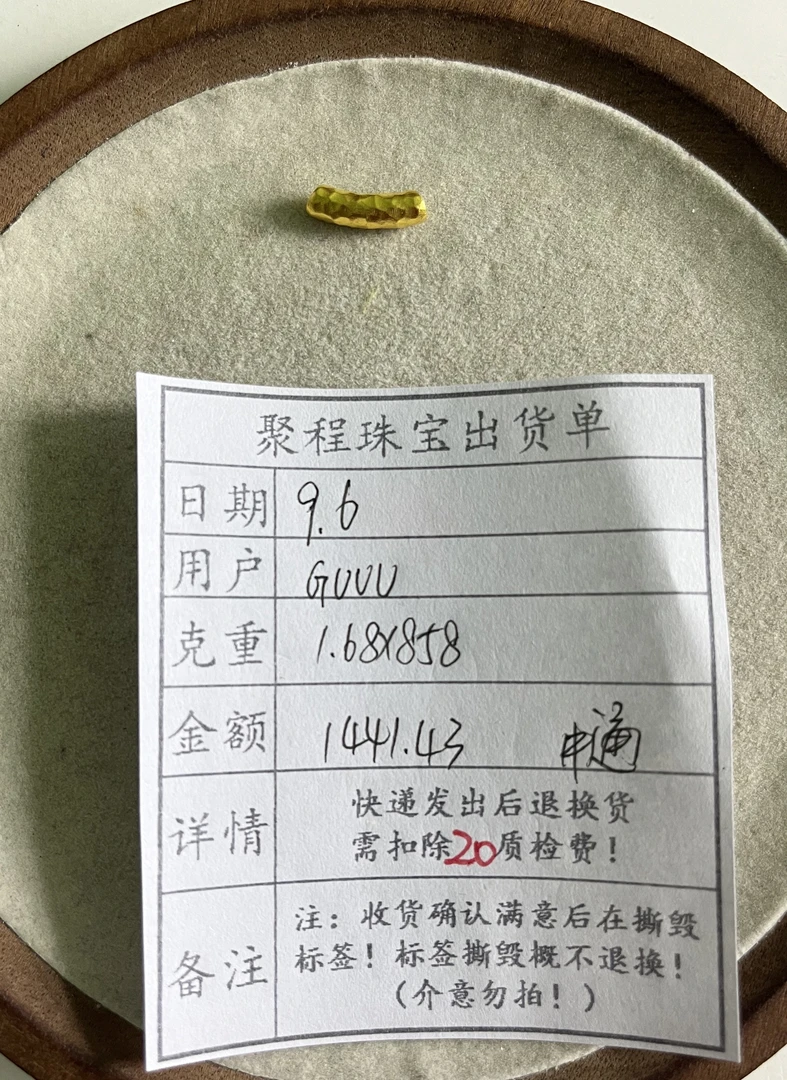 聚程珠宝出货单
日期 9.6
用户 GUUU
克重 1.68x858
金额 1441.43 申通
详情 快递发出后退换货
需扣除20质检费！
备注 注：收货确认满意后在撕毁
标签！标签撕毁概不退换！
（介意勿拍！）